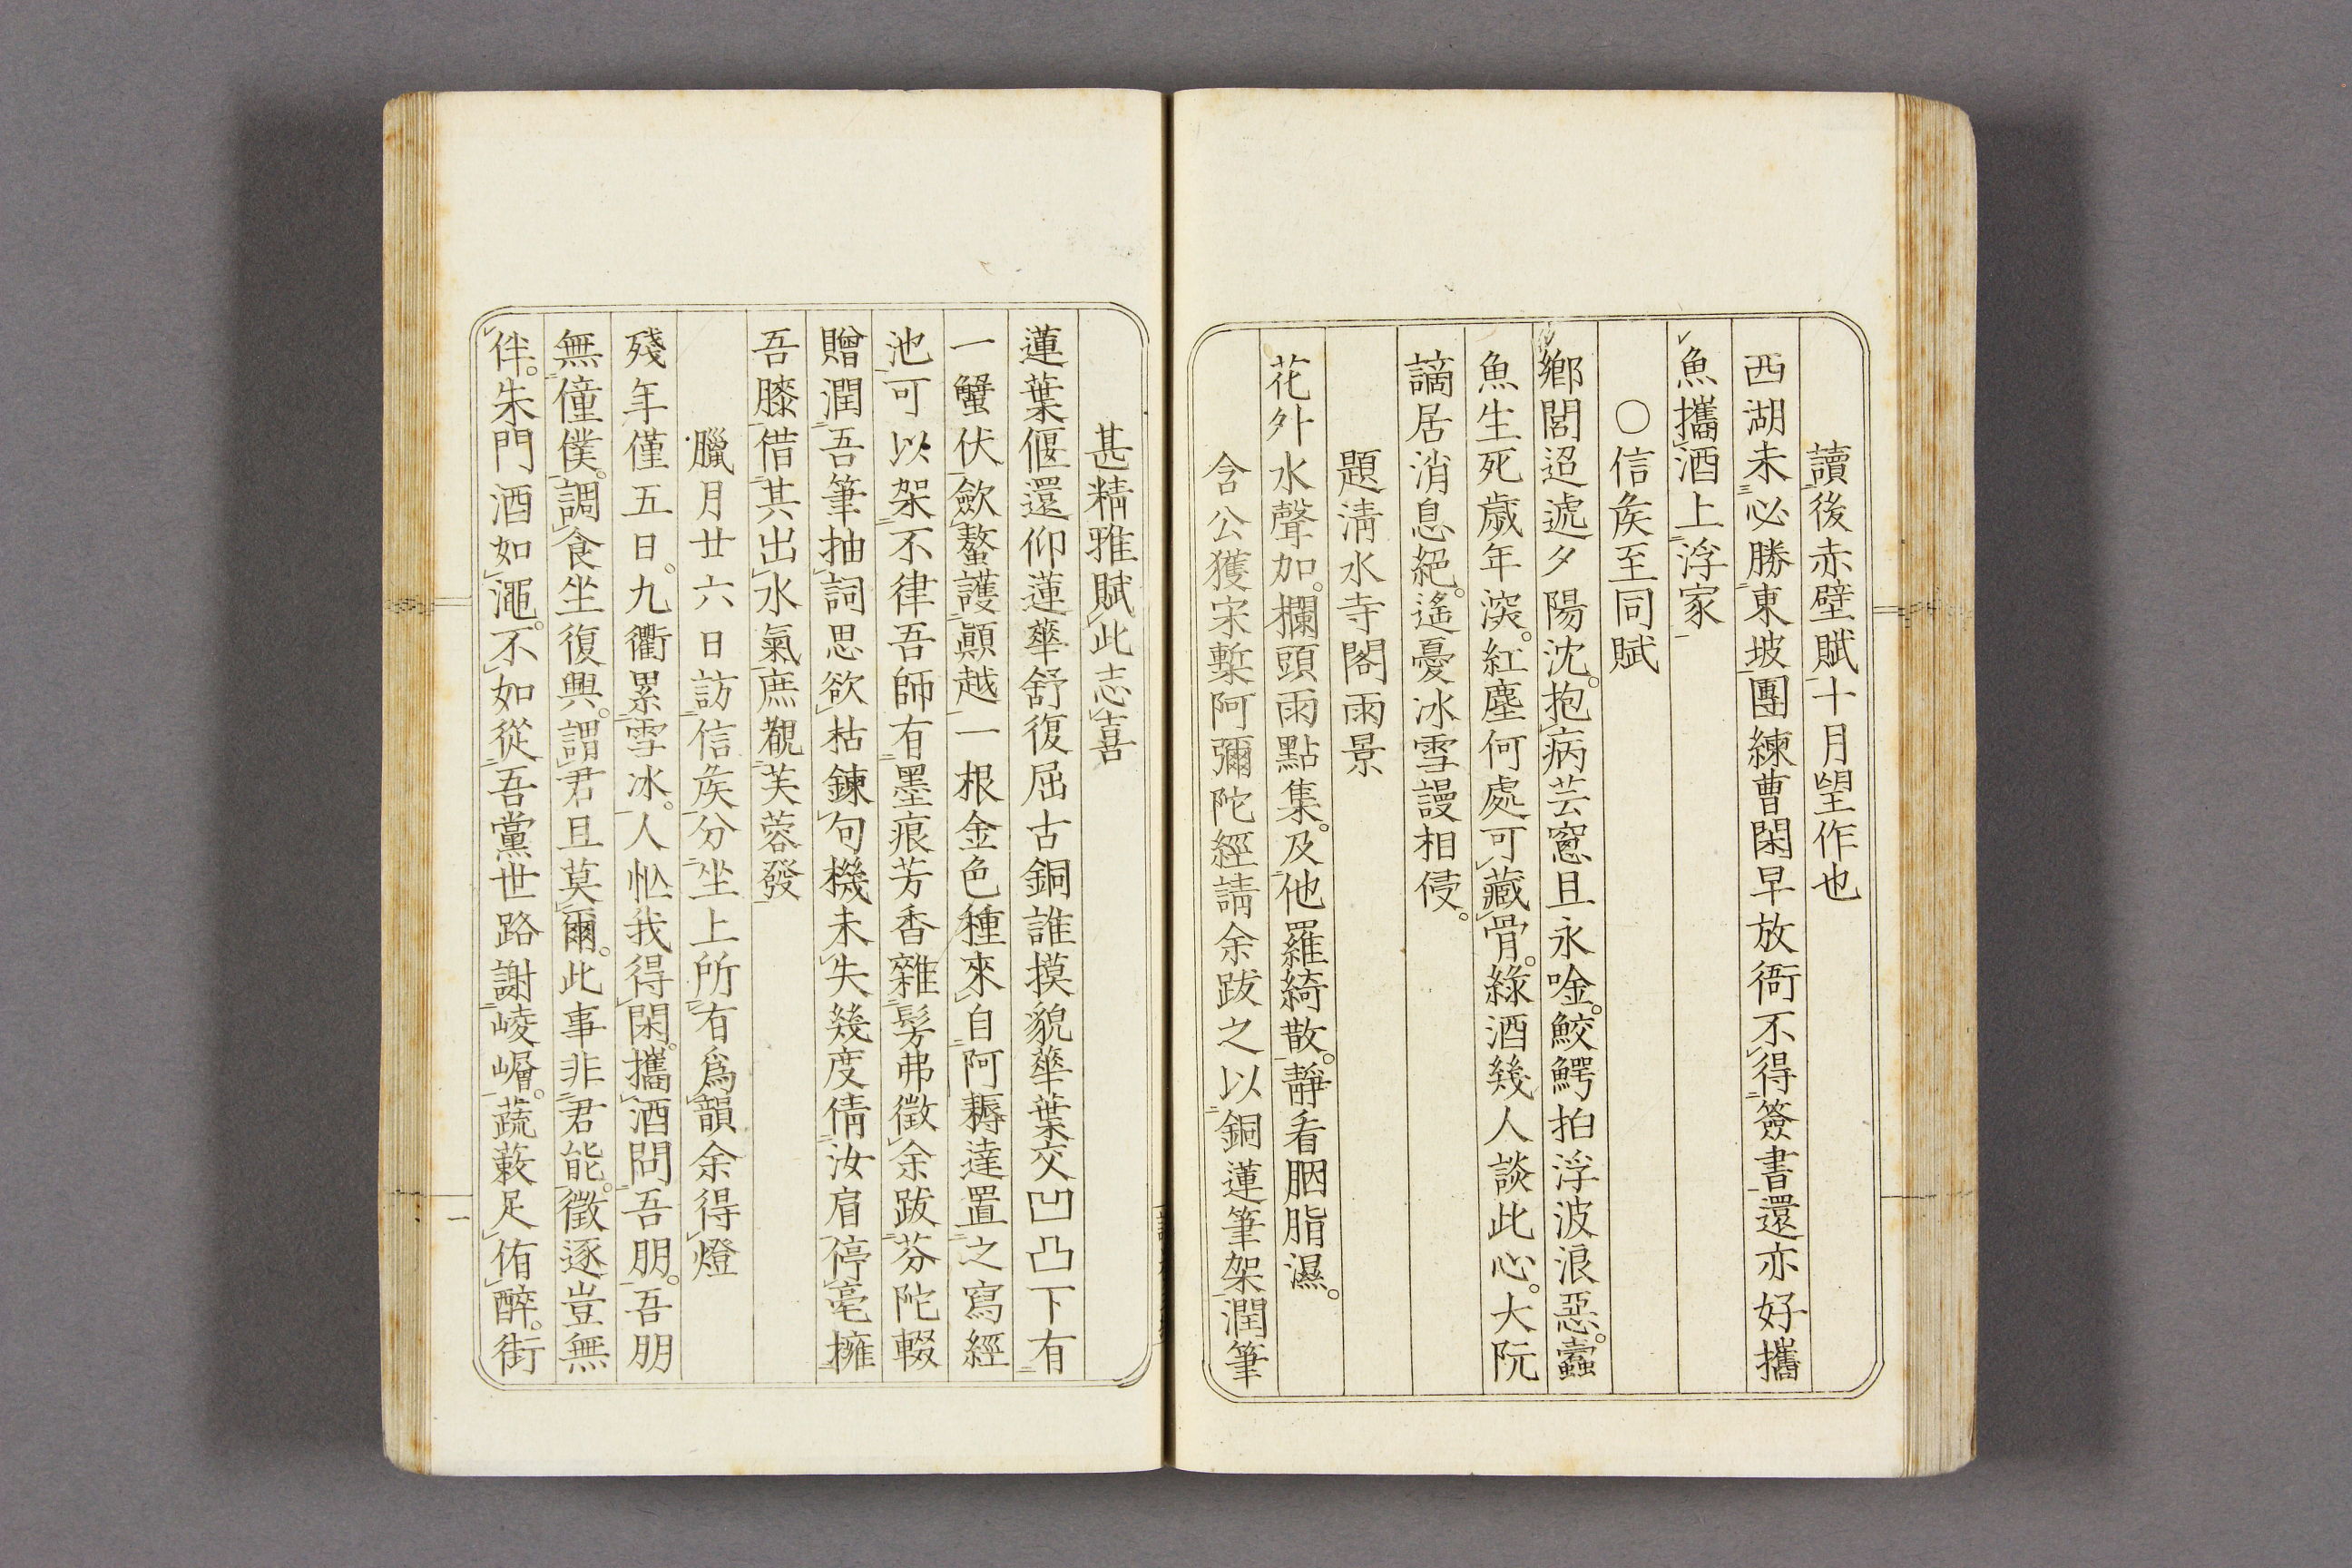 讀後赤壁賦十月望作也
西湖未必勝東坡團練曹閑早放衙不得簽書還亦好攜
魚攜酒上浮家
〇信矦至同賦
鄉閭迢遞夕陽沈。抱病芸窓且永唫。鮫鰐拍浮波浪惡。蠹
魚生死歲年深。紅塵何處可藏骨。綠酒幾人談此心。大阮
謫居消息絕。遙憂冰雪謾相侵。
題淸水寺閣雨景
花外水聲加。欄頭雨點集。及他羅綺散。靜看胭脂濕。
含公獲宋槧阿彌陀經請余跋之以銅蓮筆架潤筆
甚精雅賦此志喜
蓮葉偃還仰蓮華舒復屈古銅誰摸貌華葉交凹凸下有
一蟹伏歛螯護顚越一根金色種來自阿耨達置之寫經
池可以架不律吾師有墨痕芳香雜髣弗徵余跋芬陀輟
贈潤吾筆抽詞思欲枯鍊句機未失幾度倩汝肩停毫擁
吾膝借其出水氣庶觀芙蓉發
臘月廿六日訪信矦分坐上所有爲韻余得燈
殘年僅五日。九衢累雪冰。人忙我得閑。攜酒問吾朋。吾朋
無僮僕。調食坐復興。謂君且莫爾。此事非君能。徵逐豈無
伴。朱門酒如澠。不如從吾黨世路謝崚嶒。蔬蔌足侑醉。街
一